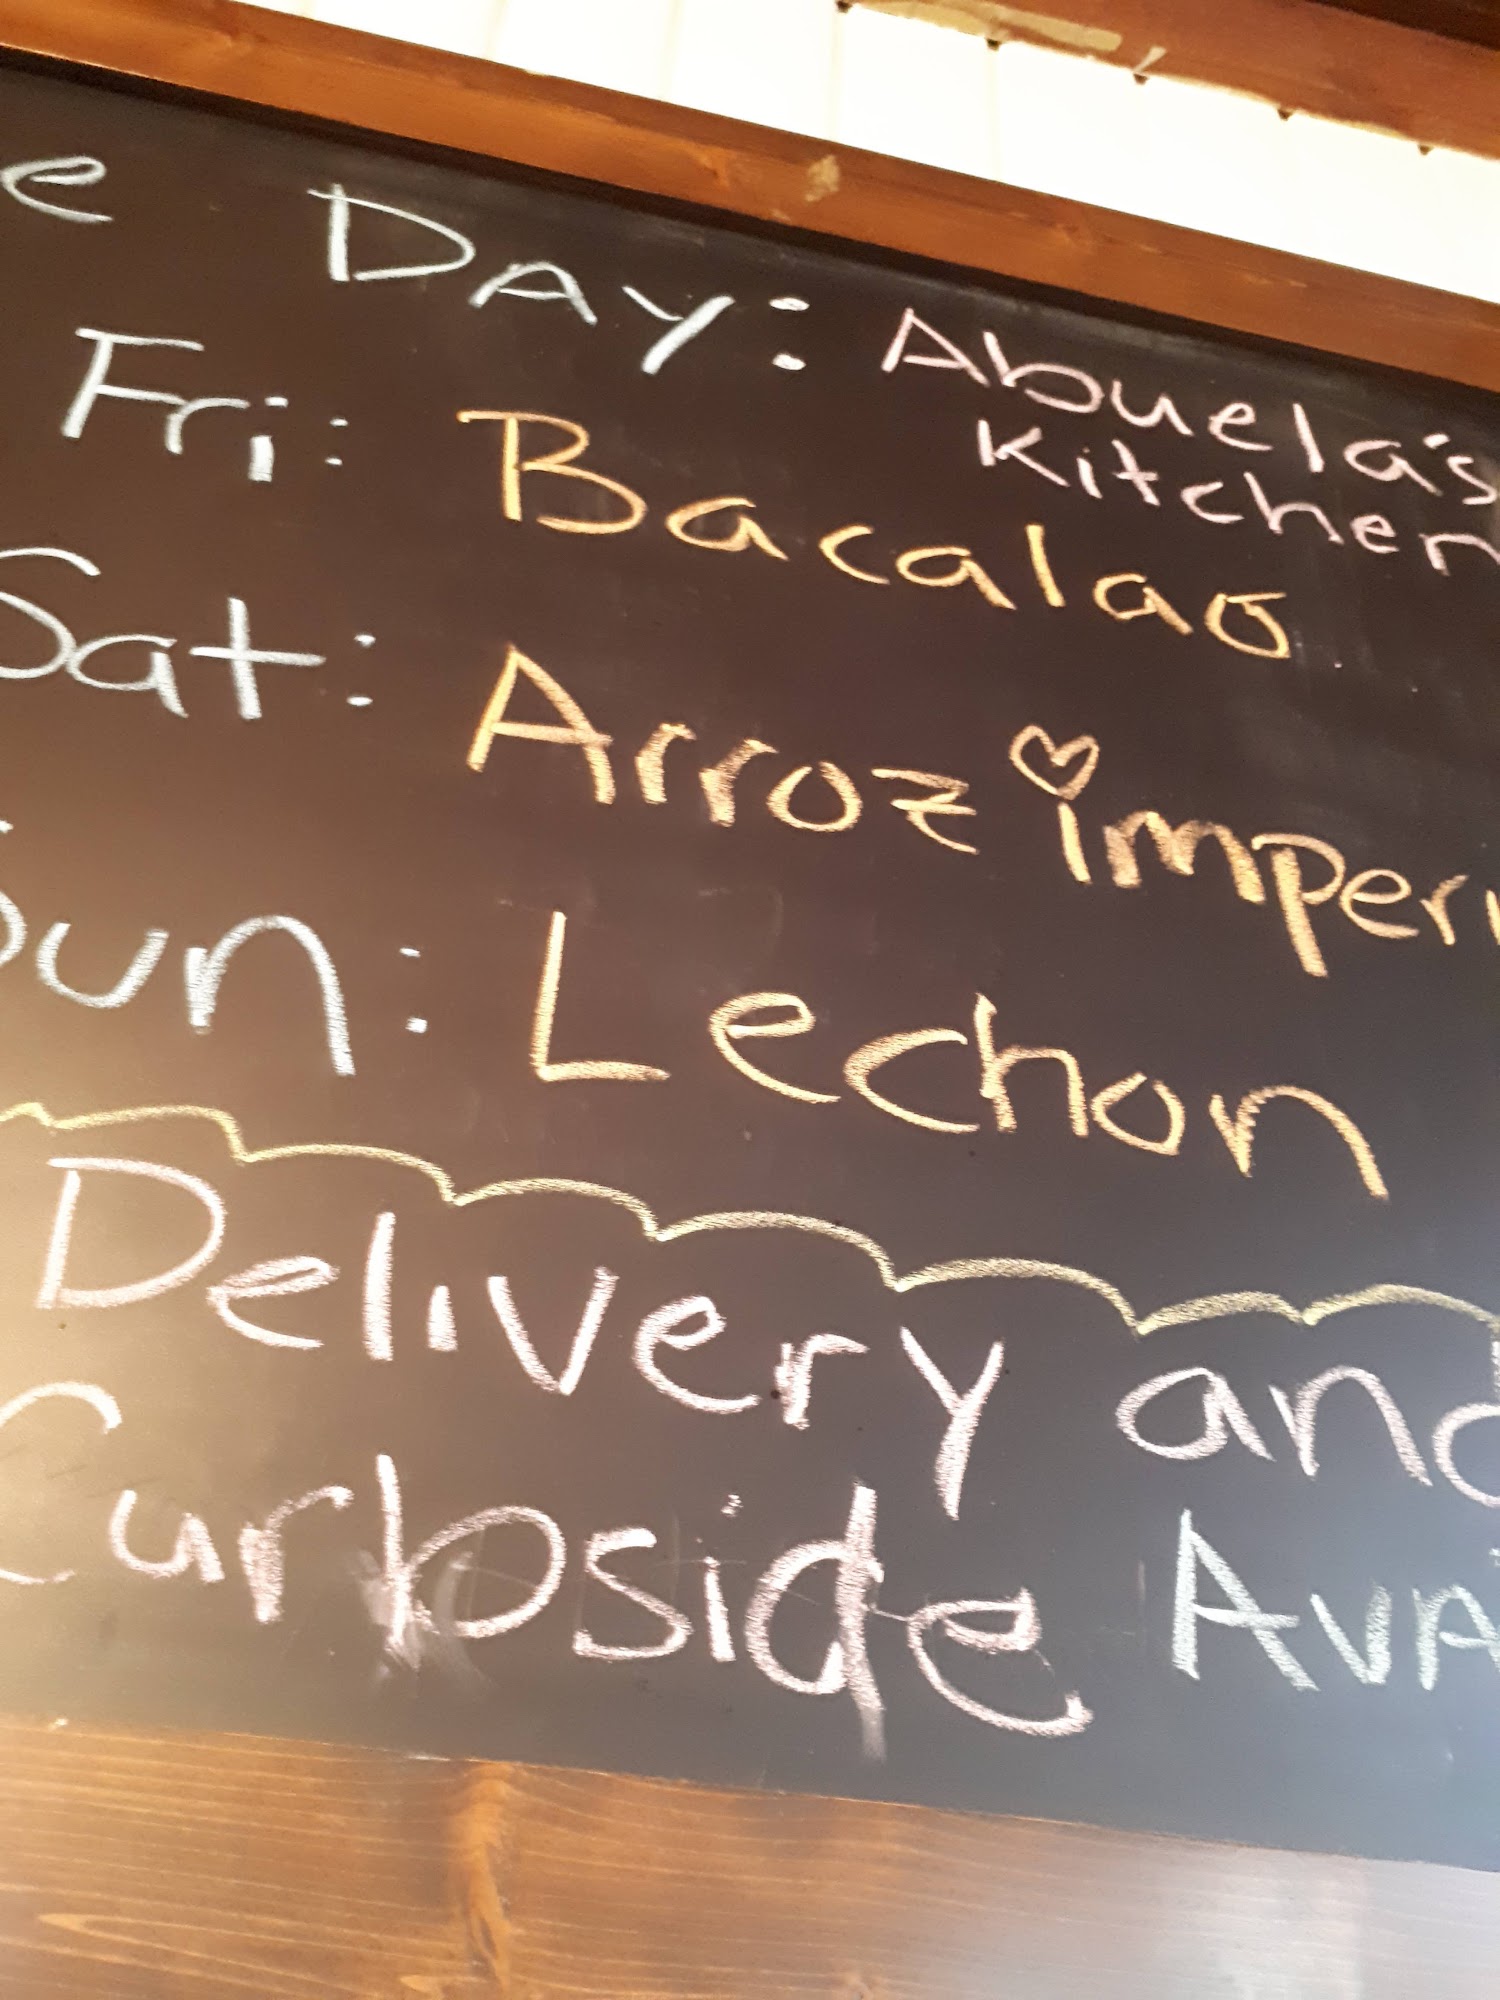 e DAY: Abuela's
Kitchen
Fri: Bacalao
Sat: Arroz imperi
Sun: Lechon
Delivery and
Curbside AVA